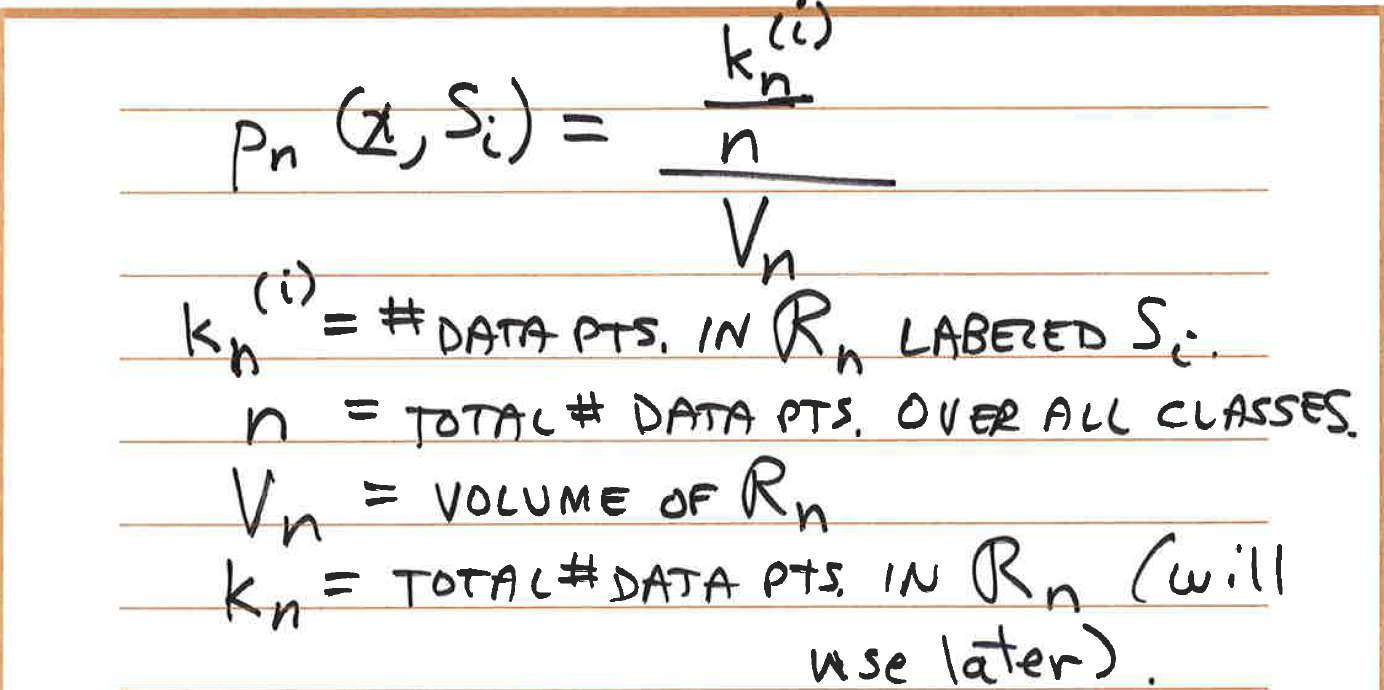 pₙ (x, Sᵢ) = ((kₙ⁽ⁱ⁾ / n) / Vₙ)
kₙ⁽ⁱ⁾ = # DATA PTS. IN Rₙ LABELED Sᵢ.
n = TOTAL # DATA PTS. OVER ALL CLASSES.
Vₙ = VOLUME OF Rₙ
kₙ = TOTAL # DATA PTS. IN Rₙ (will
use later).